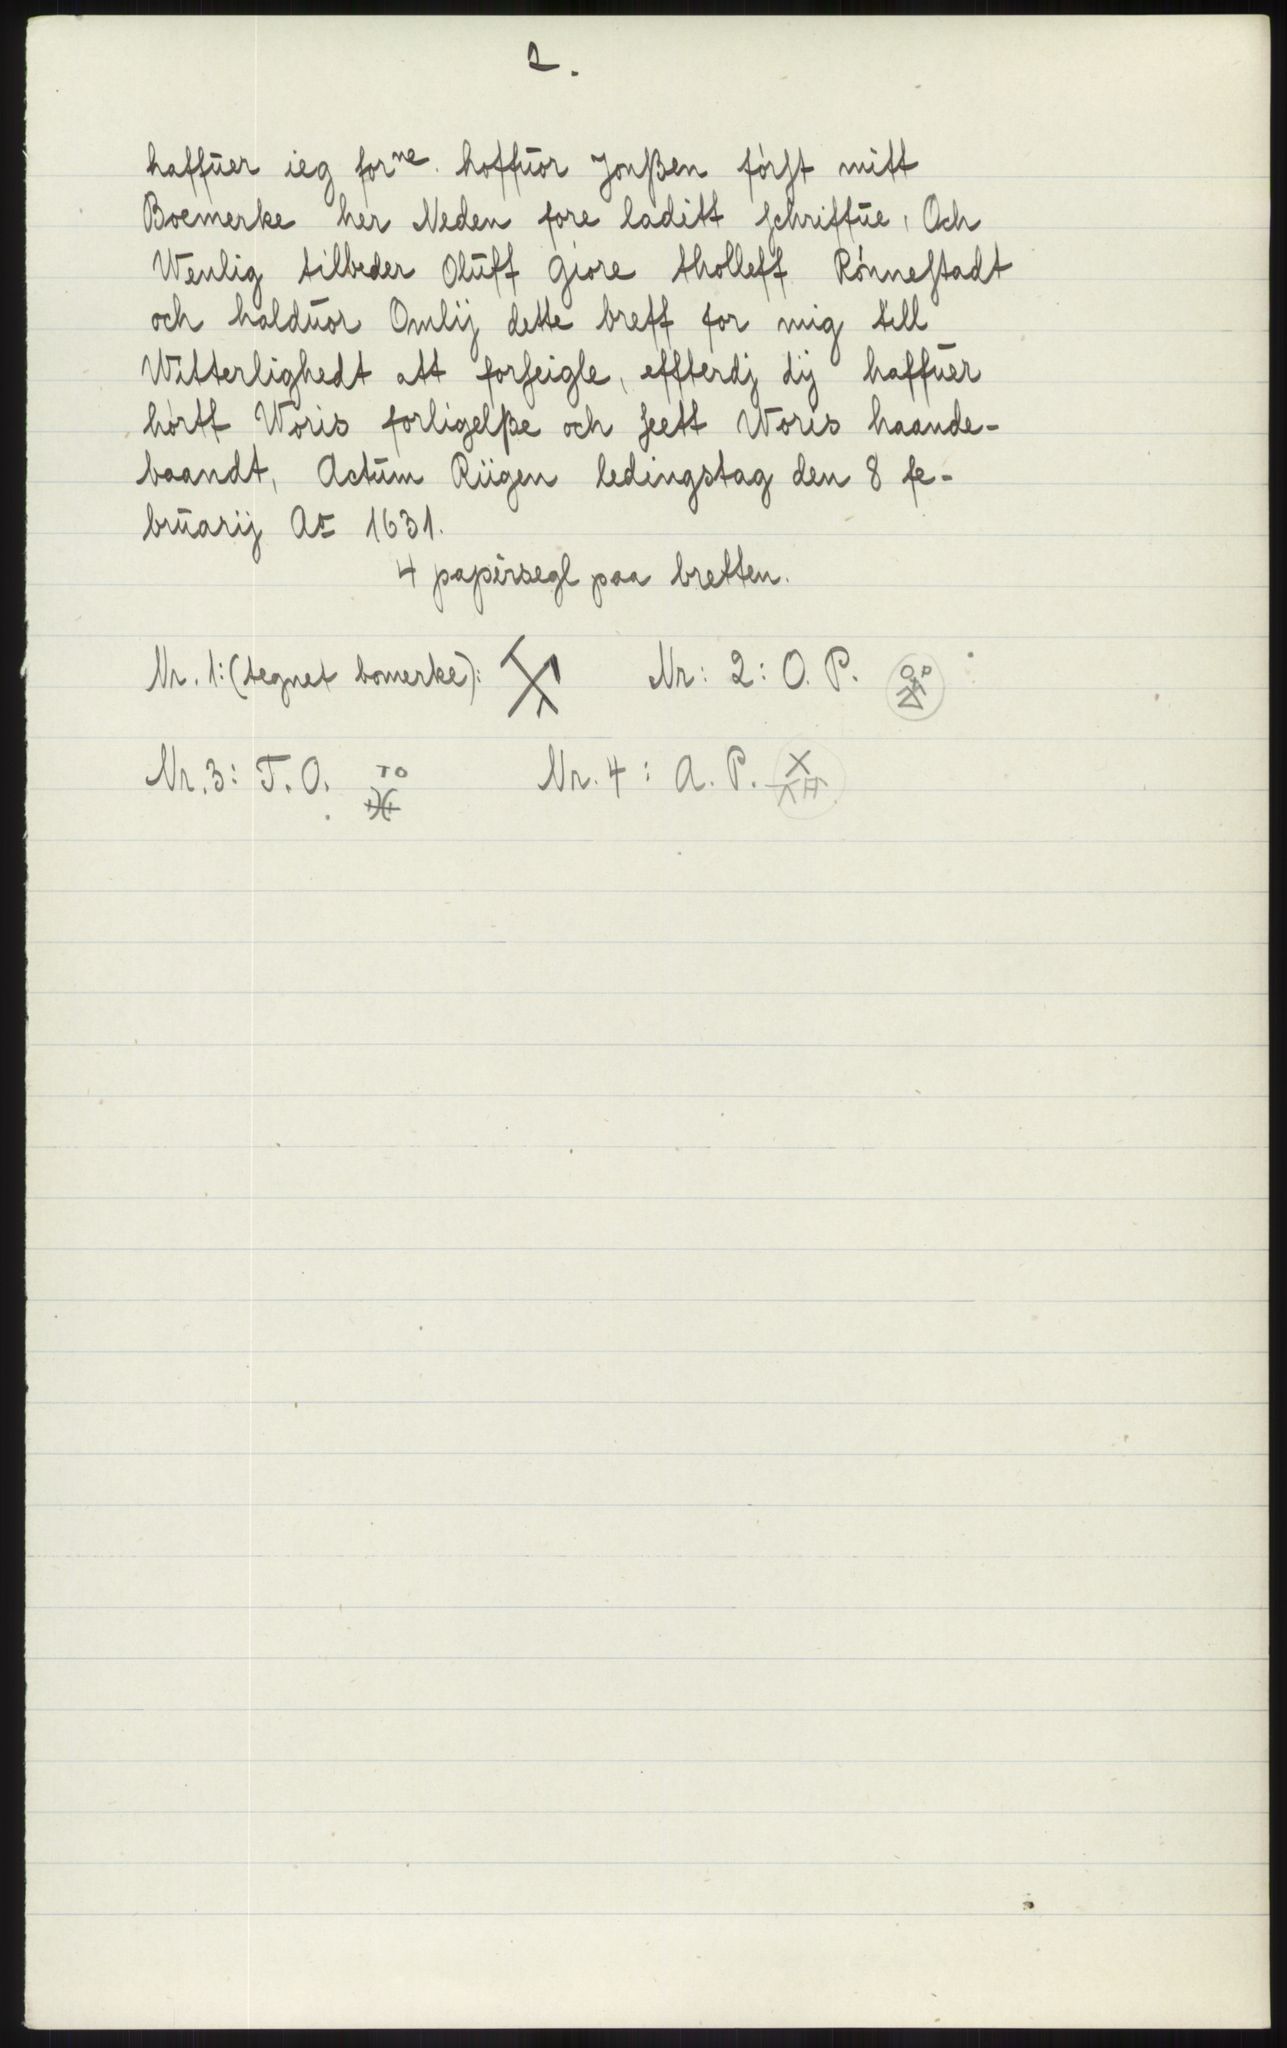 2.
haffuer ieg forne. hoffuor Jonßen først mitt
Boemerke her Neden fore laditt schriffue, Och
Wenlig tilbeder Oluff Giøre tholleff Rønnestadt
och halduor Omlij dette breff for mig till
Witterlighedt att forseigle, effterdj dij haffuer
hørtt Woris forligelße och seett Woris haande-
baandt, Actum Riigen ledingstag den 8 fe-
bruarij Ao 1631.
4 papirsegl paa bretten.
Nr. 1: (tegnet bomerke): Nr: 2: O. P. O P
Nr. 3: T. O. TO Nr. 4: A. P.